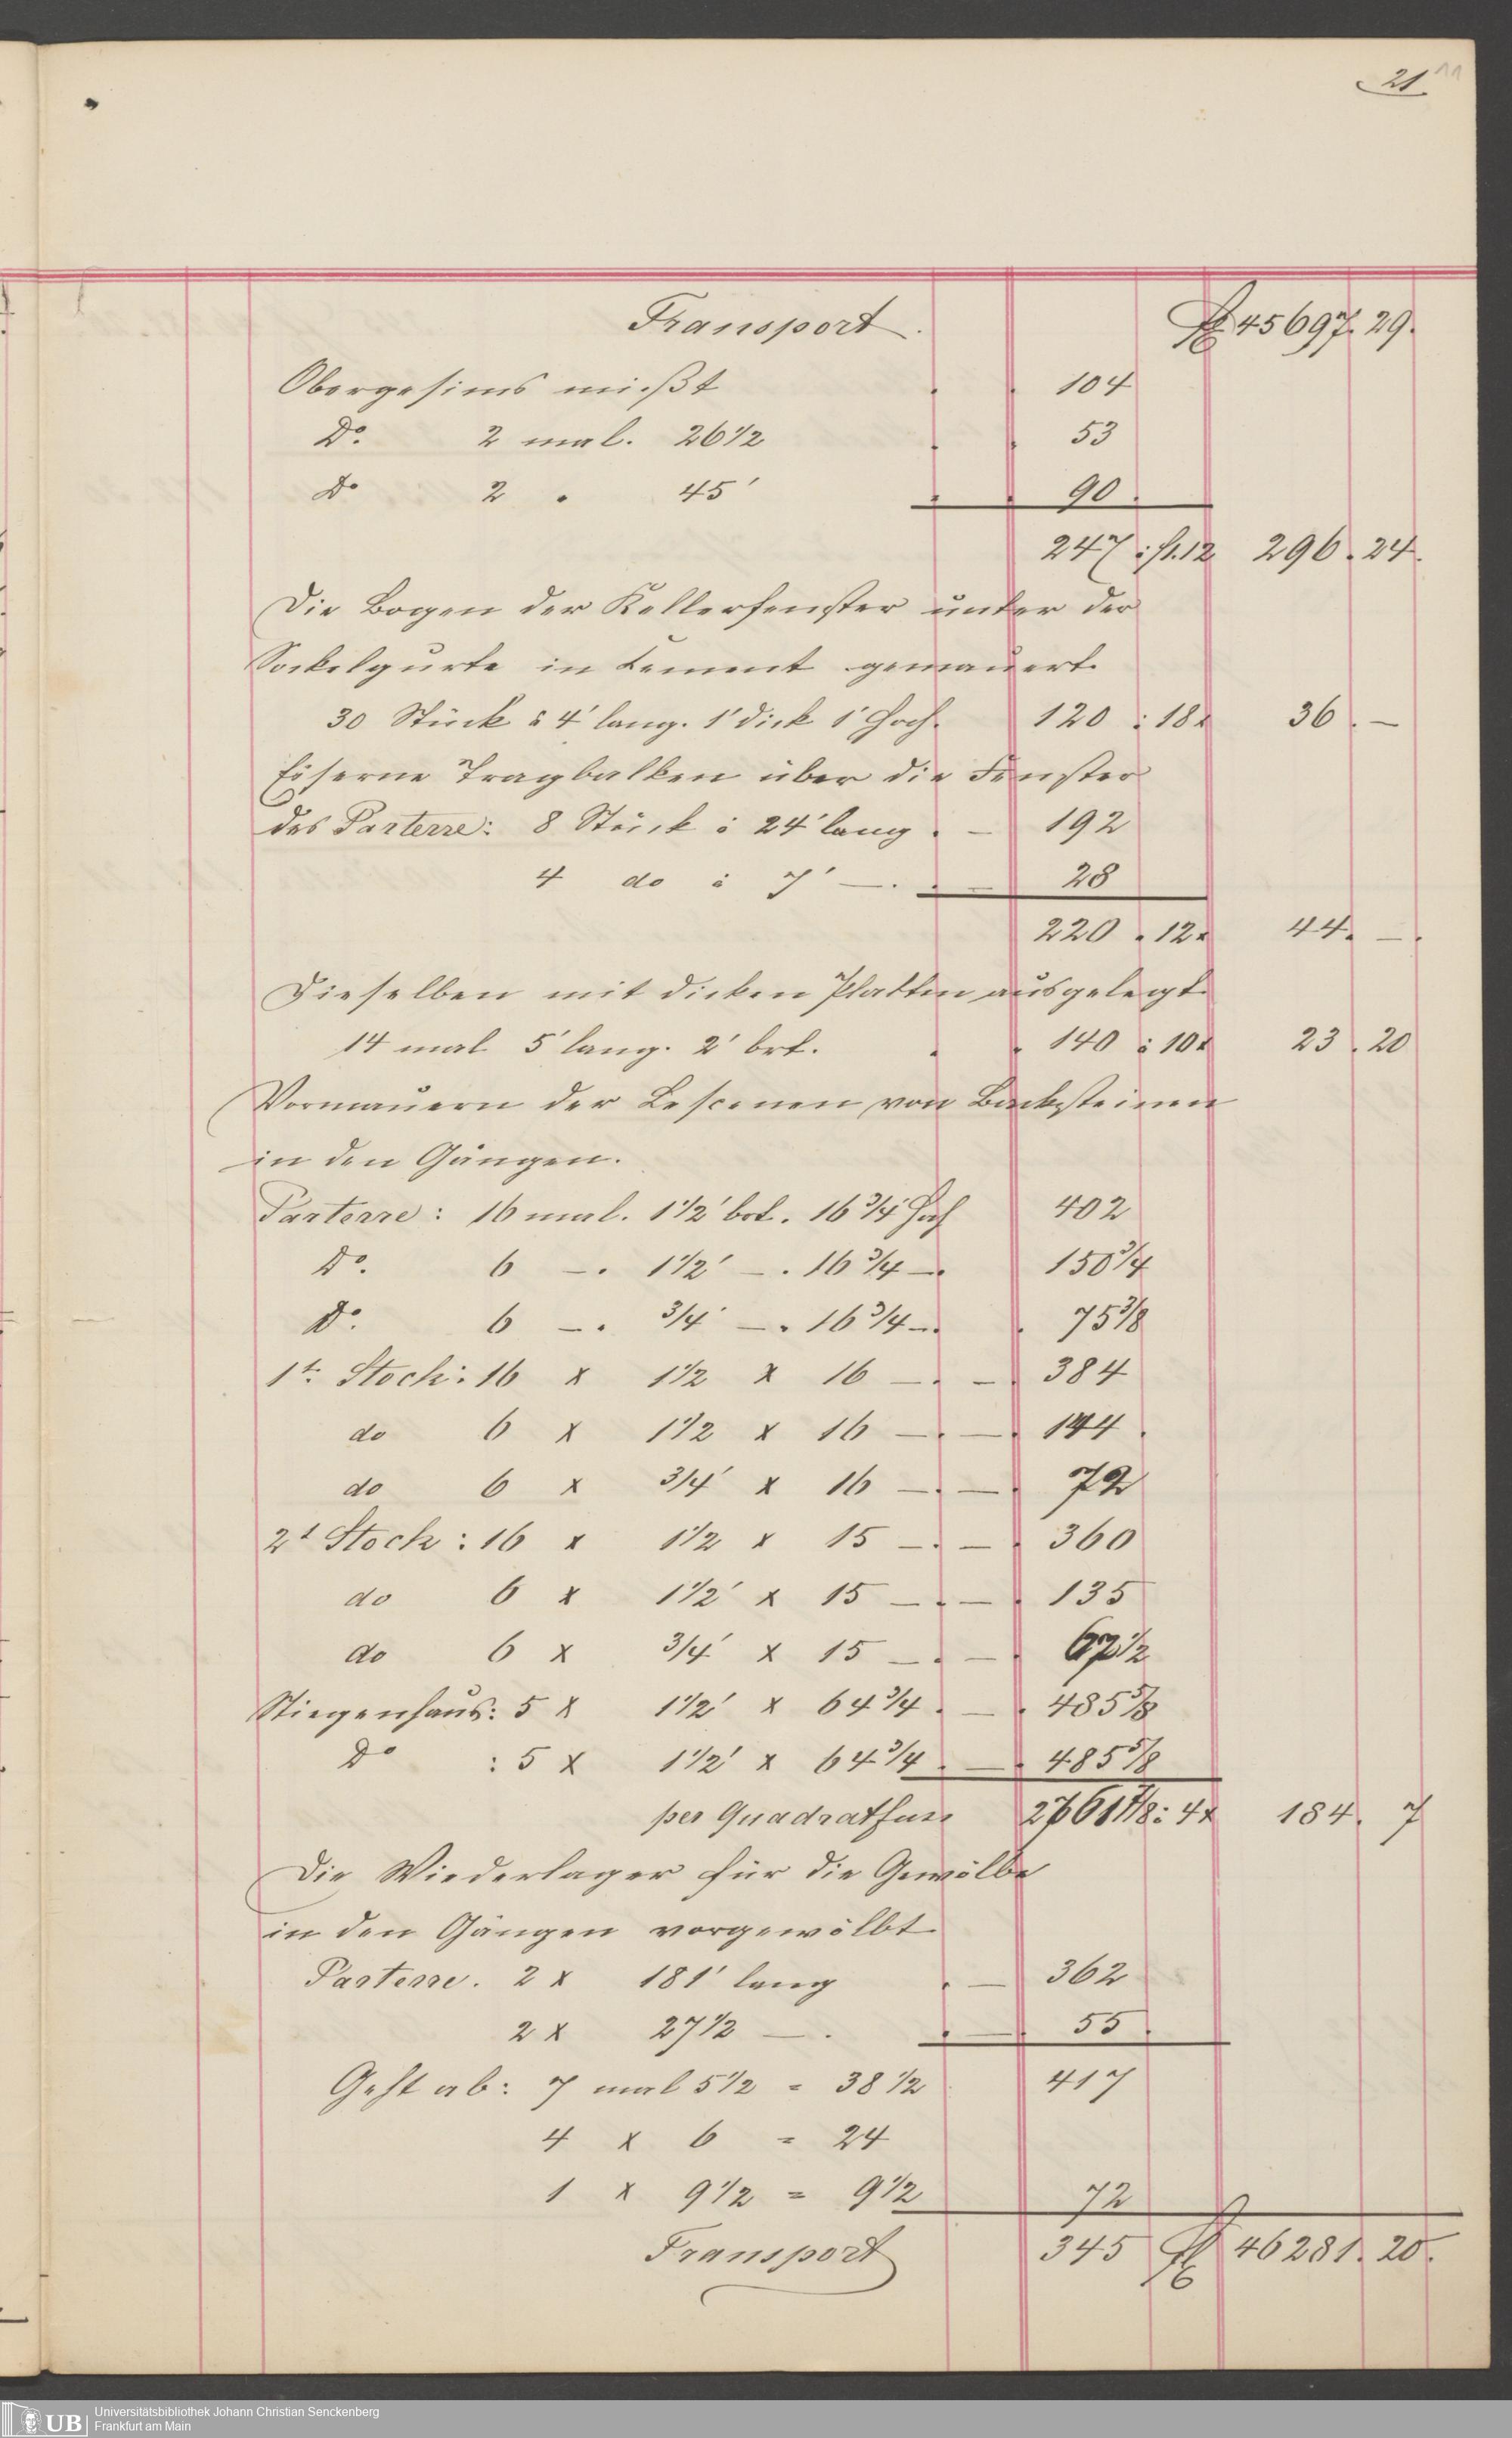 21.
11
Transport. fl 45697. 29.
Obergesims mißt 104
Do. 2 mal. 26 1/2 53
Do 2 " 45' 90.
247 : fl.12 296. 24.
Die Bogen der Kellerfenster unter der
Sockelgurte in Cement gemauert.
30 Stück à 4' lang. 1' dick 1' hoch. 120 : 18x 36. —
Eiserne Tragbalken über die Fenster
des Parterre: 8 Stück à 24' lang . — 192
4 do à 7' — . 28
220 . 12x 44. —.
Dieselben mit dicken Platten ausgelegt.
14 mal 5' lang. 2' brt. 140 à 10x 23. 20
Vormauern der Lescenen von Backsteinen
in den Gängen.
Parterre: 16 mal. 1 1/2' brt. 16 3/4' hoch 402
Do. 6 —. 1 1/2' —. 16 3/4 —. 150 3/4
Do. 6 —. 3/4' —. 16 3/4 —. 75 3/8
1t. Stock: 16 x 1 1/2 x 16 — . — . 384
do 6 x 1 1/2 x 16 — . — . 144.
do 6 x 3/4' x 16 — . — . 72
2t Stock: 16 x 1 1/2 x 15 — . — . 360
do 6 x 1 1/2' x 15 — . — . 135
do 6 x 3/4' x 15 — . — . 67 1/2
Stiegenhaus: 5 x 1 1/2' x 64 3/4 . — . 485 5/8
Do : 5 x 1 1/2' x 64 3/4 . — . 485 5/8
per Quadratfuss 2761 7/8 : 4x 184. 7
Die Wiederlager für die Gewölbe
in den Gängen vorgewölbt.
Parterre. 2 x 181' lang . — 362
2 x 27 1/2 — . . — . 55.
Geht ab: 7 mal 5 1/2 = 38 1/2 417
4 x 6 = 24
1 x 9 1/2 = 9 1/2 72
Transport 345 fl 46281. 20.
UB
Universitätsbibliothek Johann Christian Senckenberg
Frankfurt am Main